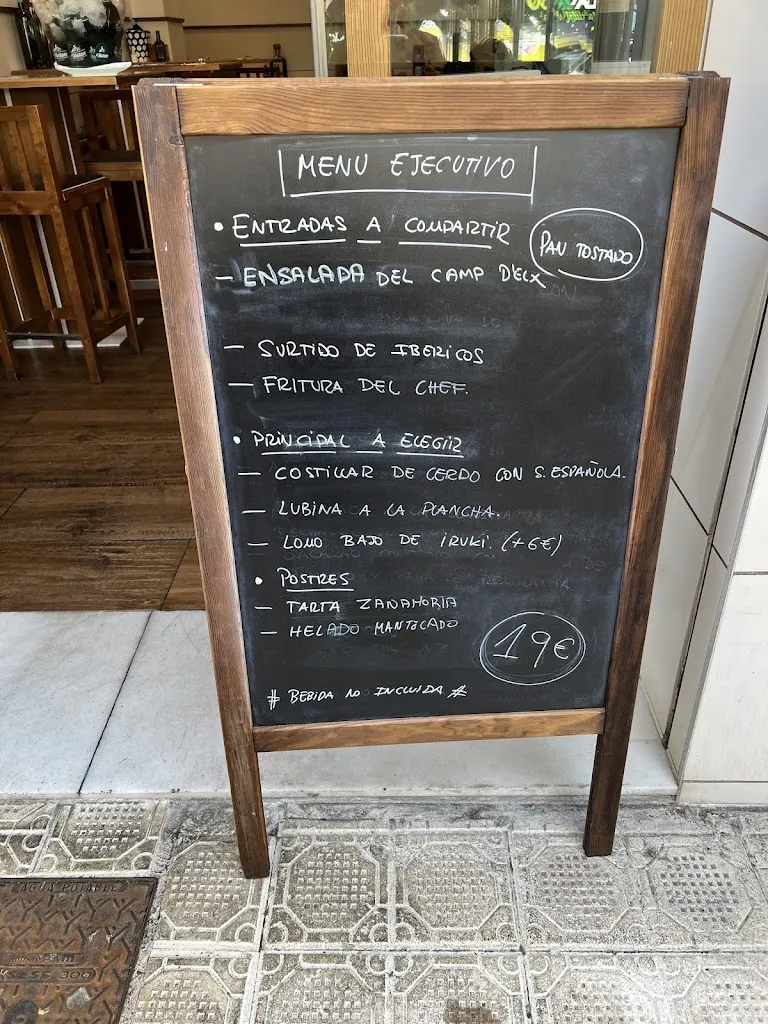 MENU EJECUTIVO
• ENTRADAS A COMPARTIR
PAN TOSTADO
- ENSALADA DEL CAMP D'ELX
- SURTIDO DE IBERICOS
- FRITURA DEL CHEF.
• PRINCIPAL A ELEGIR
- COSTILLAR DE CERDO CON S. ESPAÑOLA.
- LUBINA A LA PLANCHA.
- LOMO BAJO DE IRUKI. (+6€)
• POSTRES
- TARTA ZANAHORIA
- HELADO MANTECADO
19€
# BEBIDA NO INCLUIDA #
AGUA POTABLE